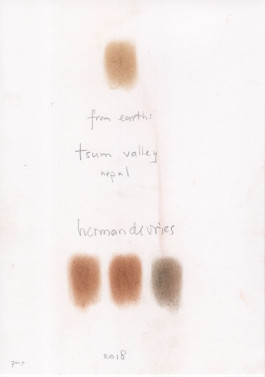 from earth:
tsum valley
nepal
herman de vries
2018